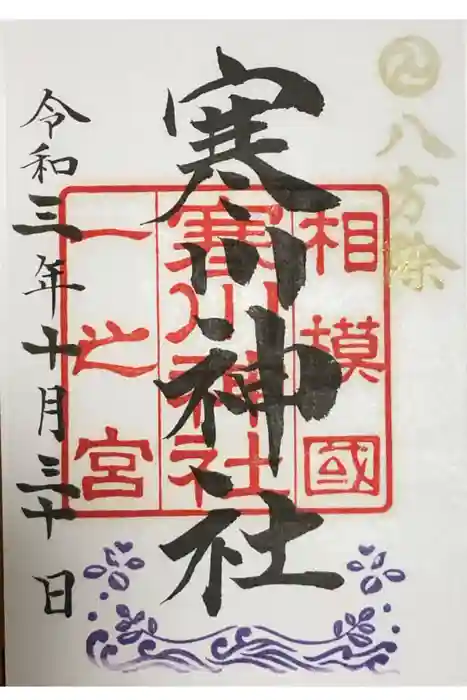 八方除
相模國
寒川神社
一之宮
寒川神社
令和三年十月三十日